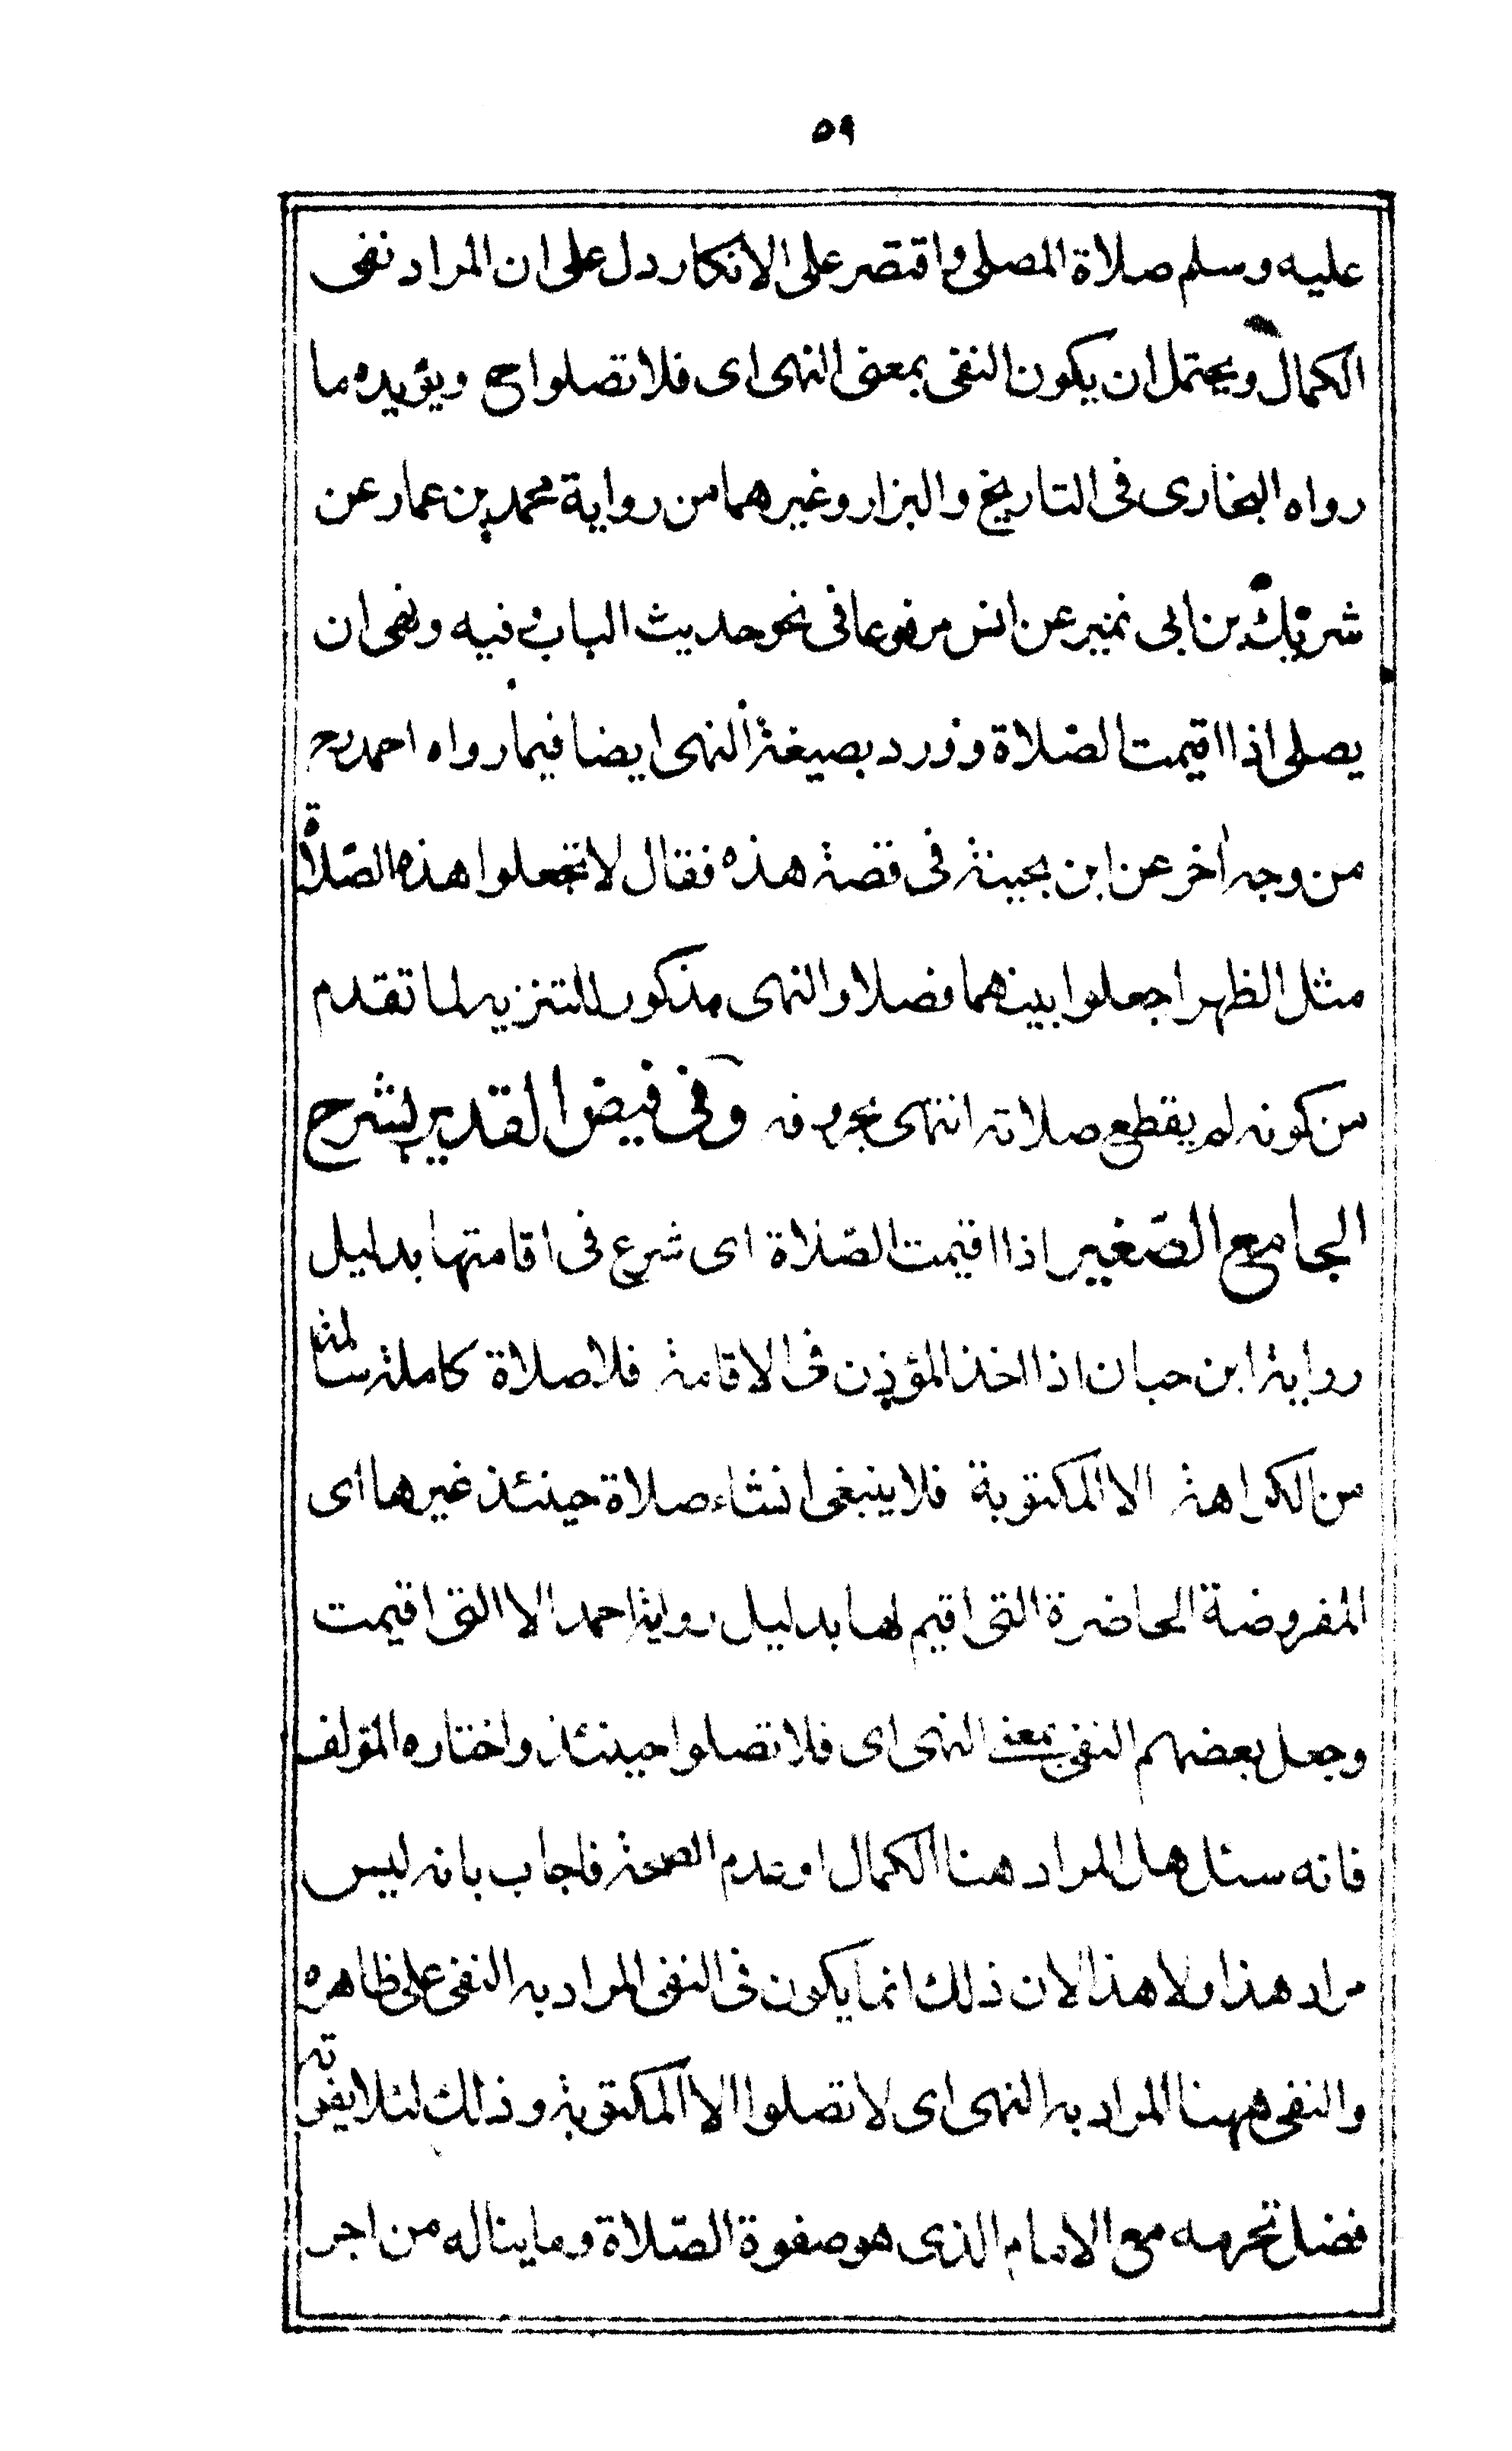 ٥٩
عليه وسلم صلاة المصلى واقتصر على الانكار دل على ان المراد نفى
الكمال ويحتمل ان يكون النفى بمعنى النهى اى فلا تصلواح ويؤيده ما
رواه البخارى فى التاريخ والبزار وغيرهما من رواية محمد بن عمار عن
شريك بن ابى نمير عن انس مرفوعا فى نحو حديث الباب وفيه ونهى ان
يصلى اذا اقيمت الصلاة وورد بصيغة النهى ايضا فيما رواه احمد رح
من وجه اخر عن ابن بحينة فى قصة هذه فقال لا تجعلوا هذه الصلاة
مثل الظهر اجعلوا بينهما فصلا والنهى مذكور للتنزيه لما تقدم
من كونه لم يقطع صلاته انتهى بحروفه وفى فيض القدير لشرح
الجامع الصغير اذا اقيمت الصلاة اى شرع فى اقامتها بدليل
رواية ابن حبان اذا اخذ المؤذن فى الاقامة فلا صلاة كاملة سالمة
من الكراهة الا المكتوبة فلا ينبغى انشاء صلاة حينئذ غيرها اى
المفروضة الحاضرة التى اقيم لها بدليل رواية احمد الا التى اقيمت
وجعل بعضهم النفى بمعنى النهى اى فلا تصلوا حينئذ واختاره المؤلف
فانه سئل هل المراد هنا الكمال او عدم الصحة فاجاب بانه ليس
مراد هذا ولا هذا لان ذلك انما يكون فى النفى المراد به النفى على ظاهره
والنفى ههنا المراد به النهى اى لا تصلوا الا المكتوبة وذلك لئلا يفوته
فضل تحرمه مع الامام الذى هو صفوة الصلاة وما يناله من اجر